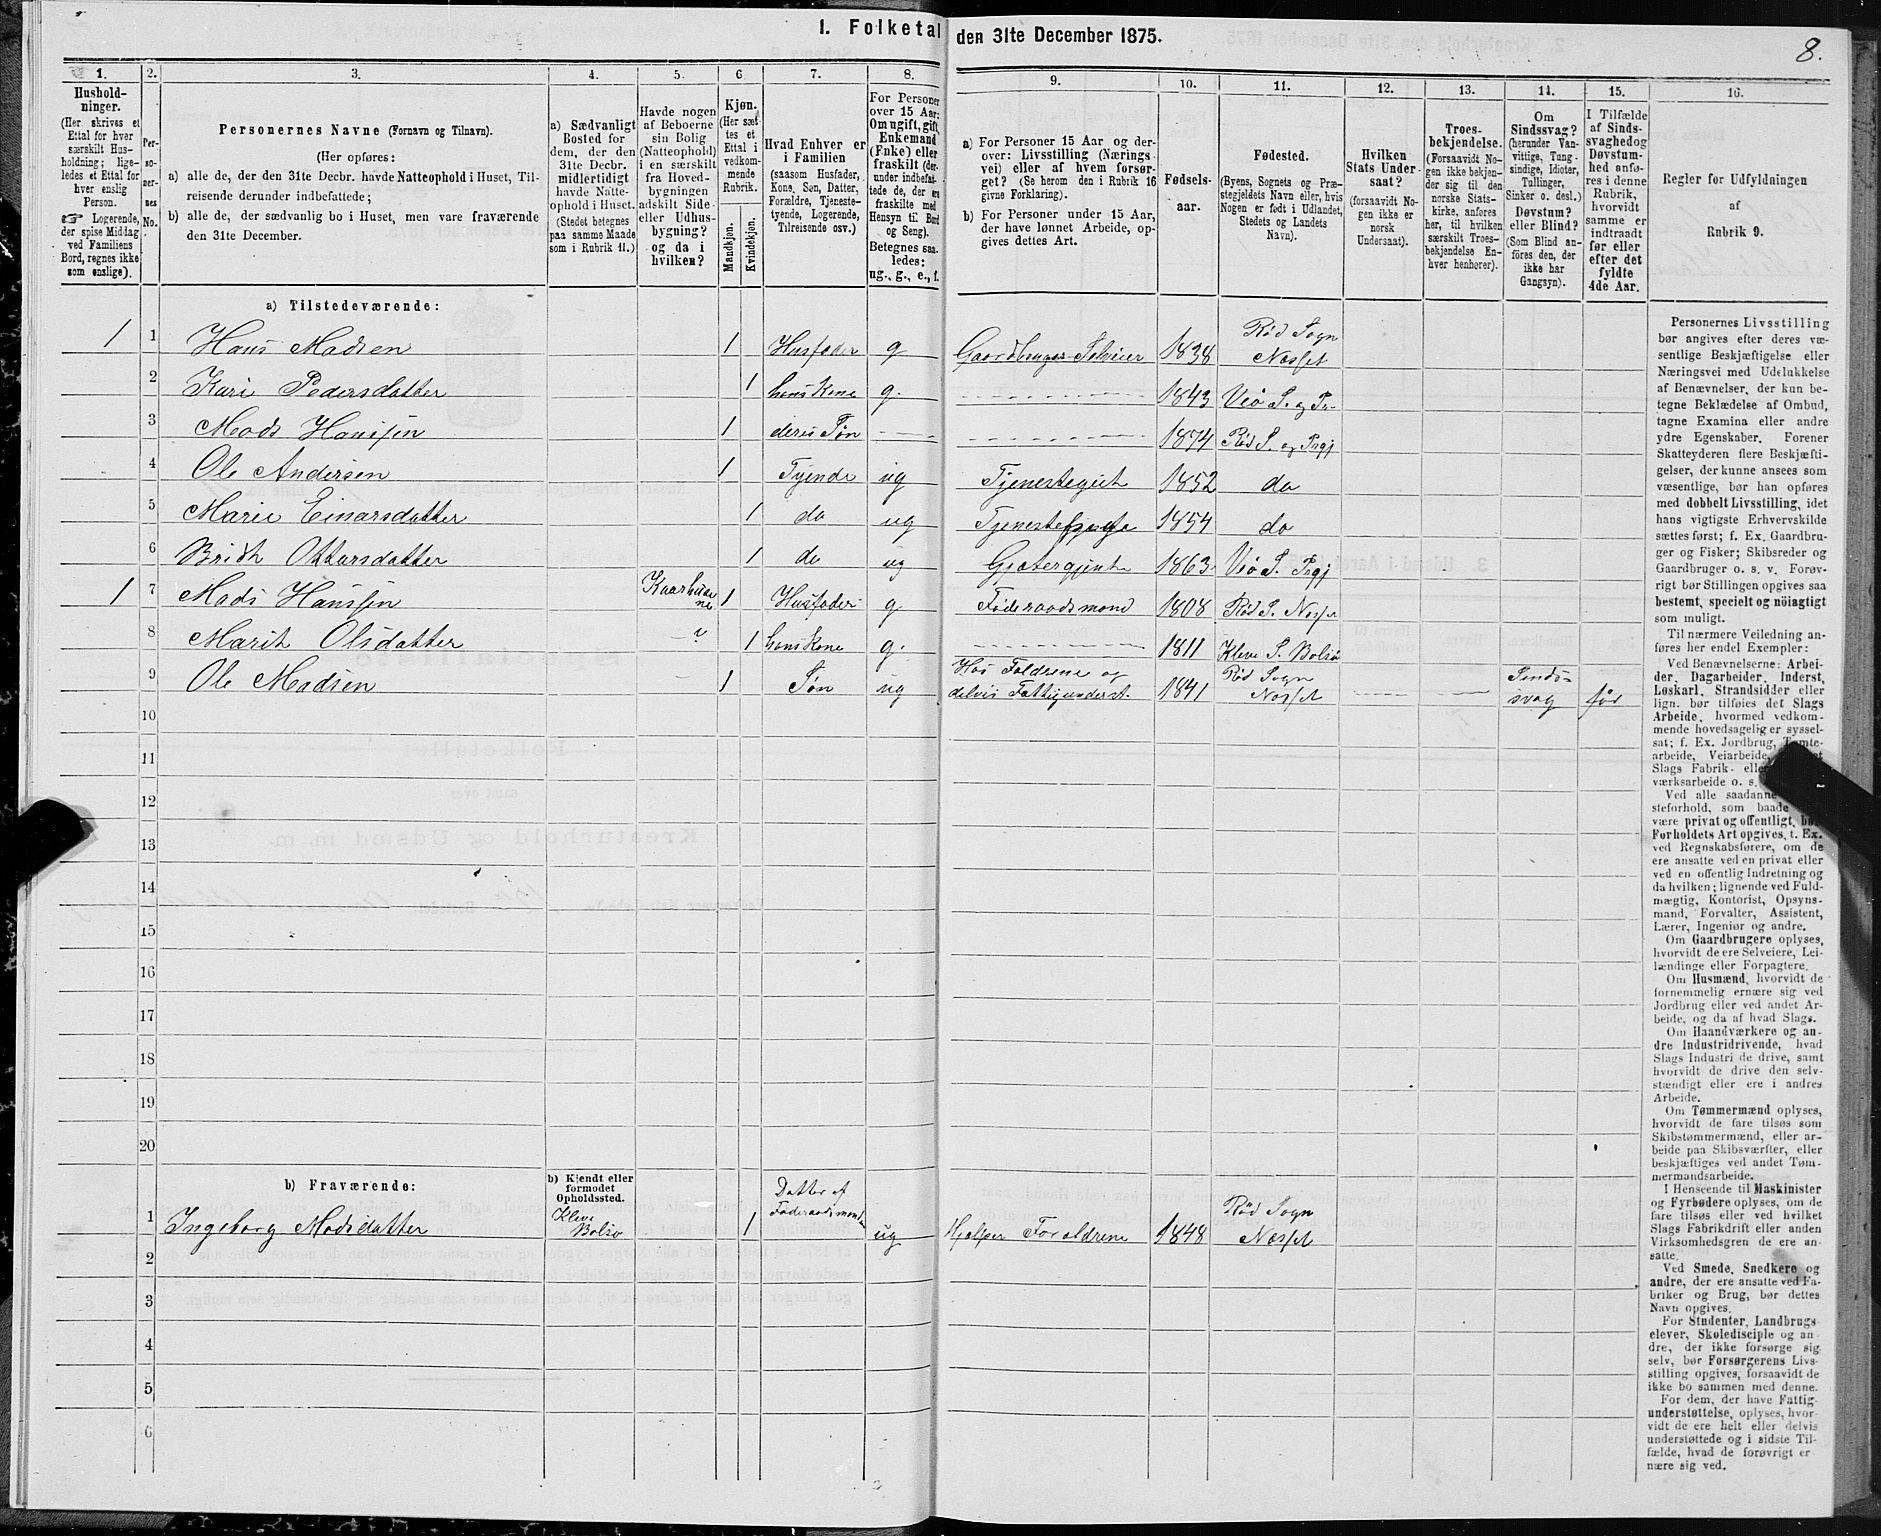 I. Folketal den 31te December 1875.
8.
1.
Hushold-
ninger.
(Her skrives et
Ettal for hver
særskilt Hus-
holdning; lige-
ledes et Ettal for
hver enslig
Person.
☞ Logerende,
der spise Middag
ved Familiens
Bord, regnes ikke
som enslige).
2.
Per-
so-
ner-
nes
No.
3.
Personernes Navne (Fornavn og Tilnavn).
(Her opføres:
a) alle de, der den 31te Decbr. havde Natteophold i Huset, Til-
reisende derunder indbefattede;
b) alle de, der sædvanlig bo i Huset, men vare fraværende
den 31te December.
4.
a) Sædvanligt
Bosted for
dem, der den
31te Decbr.
midlertidigt
havde Natte-
ophold i Huset.
(Stedet betegnes
paa samme Maade
som i Rubrik 11.)
5.
Havde nogen
af Beboerne
sin Bolig
(Natteophold)
i en særskilt
fra Hoved-
bygningen
adskilt Side-
eller Udhus-
bygning?
og da i
hvilken?
6
Kjøn.
(Her sæt-
tes et
Ettal i
vedkom-
mende
Rubrik.
Mandkjøn.
Kvindekjøn.
7.
Hvad Enhver er
i Familien
(saasom Husfader,
Kone, Søn, Datter,
Forældre, Tjeneste-
tyende, Logerende,
Tilreisende osv.)
8.
For Personer
over 15 Aar:
Om ugift, gift,
Enkemand
(Enke) eller
fraskilt (der-
under indbefat-
tede de, der ere
fraskilte med
Hensyn til Bord
og Seng).
Betegnes saa-
ledes:
ug., g., e., f.
9.
a) For Personer 15 Aar og der-
over: Livsstilling (Nærings-
vei) eller af hvem forsør-
get? (Se herom den i Rubrik 16
givne Forklaring).
b) For Personer under 15 Aar,
der have lønnet Arbeide, op-
gives dettes Art.
10.
Fødsels-
aar.
11.
Fødested.
(Byens, Sognets og Præ-
stegjeldets Navn eller, hvis
Nogen er født i Udlandet,
Stedets og Landets
Navn).
12.
Hvilken
Stats Under-
saat?
(forsaavidt No-
gen ikke er
norsk
Undersaat).
13.
Troes-
bekjendelse.
(Forsaavidt No-
gen ikke bekjen-
der sig til den
norske Stats-
kirke, anføres
her, til hvilken
særskilt Troes-
bekjendelse En-
hver henhører).
14.
Om
Sindssvag?
(herunder Van-
vittige, Tung-
sindige, Idioter,
Tullinger,
Sinker o. desl.)
Døvstum?
eller Blind?
(Som Blind an-
føres den, der
ikke har
Gangsyn).
15.
I Tilfælde
af Sinds-
svaghed og
Døvstum-
hed anfø-
res i denne
Rubrik,
hvorvidt
samme er
indtraadt
før eller
efter det
fyldte
4de Aar.
16.
Regler for Udfyldningen
af
Rubrik 9.
a) Tilstedeværende:
1 1 Hans Madsen 1 Husfader g Gaardbruger Selveier 1838 Rød Sogn Næsset
2 Kari Pedersdatter 1 hans Kone g. 1843 Veø S. og Pr.
3 Mads Hanssen 1 deres Søn 1874 Rød S. og Prgj
4 Ole Andersen 1 Tyende ug Tjenestegut 1852 do
5 Marie Einarsdatter 1 do ug 1854 do
6 Brith Ottarsdatter 1 do ug Gjæterjente 1863 Veø S. Prgj
1 7 Mads Hanssen 1 Husfader g Føderaadsmand 1808 Rød S. Næsset
8 Marit Olsdatter 1 hans Kone g. 1811 Kleve S. Bolsø
9 Ole Madsen 1 Søn ug Hos Foldrene og delvis Fattigunderst. 1841 Rød Sogn Næsset Sinds- svag før
10
11
12
13
14
15
16
17
18
19
20
b) Fraværende:
b) Kjendt eller
formodet
Opholdssted.
1 Ingeborg Madsdatter Kleve Bolsø 1 Datter af Føderaadsmanden ug Hjelper Forældrene 1848 Rød Sogn Næsset
2
3
4
5
6
Personernes Livsstilling
bør angives efter deres væ-
sentlige Beskjæftigelse eller
Næringsvei med Udelukkelse
af Benævnelser, der kun be-
tegne Beklædelse af Ombud,
tagne Examina eller andre
ydre Egenskaber. Forener
Skatteyderen flere Beskjæfti-
gelser, der kunne ansees som
væsentlige, bør han opføres
med dobbelt Livsstilling, idet
hans vigtigste Erhvervskilde
sættes først; f. Ex. Gaardbru-
ger og Fisker; Skibsreder og
Gaardbruger o. s. v. Forøv-
rigt bør Stillingen opgives saa
bestemt, specielt og nöiagtigt
som muligt.
Til nærmere Veiledning an-
føres her endel Exempler:
Ved Benævnelserne: Arbei-
der, Dagarbeider, Inderst,
Løskarl, Strandsidder eller
lign. bør tilføies det Slags
Arbeide, hvormed vedkom-
mende hovedsagelig er syssel-
sat; f. Ex. Jordbrug, Tomte-
arbeide, Veiarbeide,
Slags Fabrik- eller
værksarbeide o. s.
Ved alle saadanne
steforhold, som baade
være privat og offentligt, bør
Forholdets Art opgives, t. Ex.
ved Regnskabsførere, om de
ere ansatte ved en privat eller
ved en offentlig Indretning og
da hvilken; lignende ved Fuld-
mægtig, Kontorist, Opsyns-
mand, Forvalter, Assistent,
Lærer, Ingeniør og andre.
Om Gaardbrugere oplyses,
hvorvidt de ere Selveiere, Lei-
lændinge eller Forpagtere.
Om Husmænd, hvorvidt de
fornemmelig ernære sig ved
Jordbrug eller ved andet Ar-
beide, og da af hvad Slags.
Om Haandværkere og an-
dre Industridrivende, hvad
Slags Industri de drive, samt
hvorvidt de drive den selv-
stændigt eller ere i andres
Arbeide.
Om Tømmermænd oplyses,
hvorvidt de fare tilsøs som
Skibstømmermænd, eller ar-
beide paa Skibsværfter, eller
beskjæftiges ved andet Tøm-
mermandsarbeide.
I Henseende til Maskinister
og Fyrbødere oplyses, om de
fare tilsøs eller ved hvilket
Slags Fabrikdrift eller anden
Virksomhedsgren de ere an-
satte.
Ved Smede, Snedkere og
andre, der ere ansatte ved Fa-
briker og Brug, bør dettes
Navn opgives.
For Studenter, Landbrugs-
elever, Skoledisciple og an-
dre, der ikke forsørge sig
selv, bør Forsørgerens Livs-
stilling opgives, forsaavidt de
ikke bo sammen med denne.
For dem, der have Fattig-
understøttelse, oplyses, hvor-
vidt de ere helt eller delvis
understøttede og i sidste Til-
fælde, hvad de forøvrigt er-
nære sig ved.